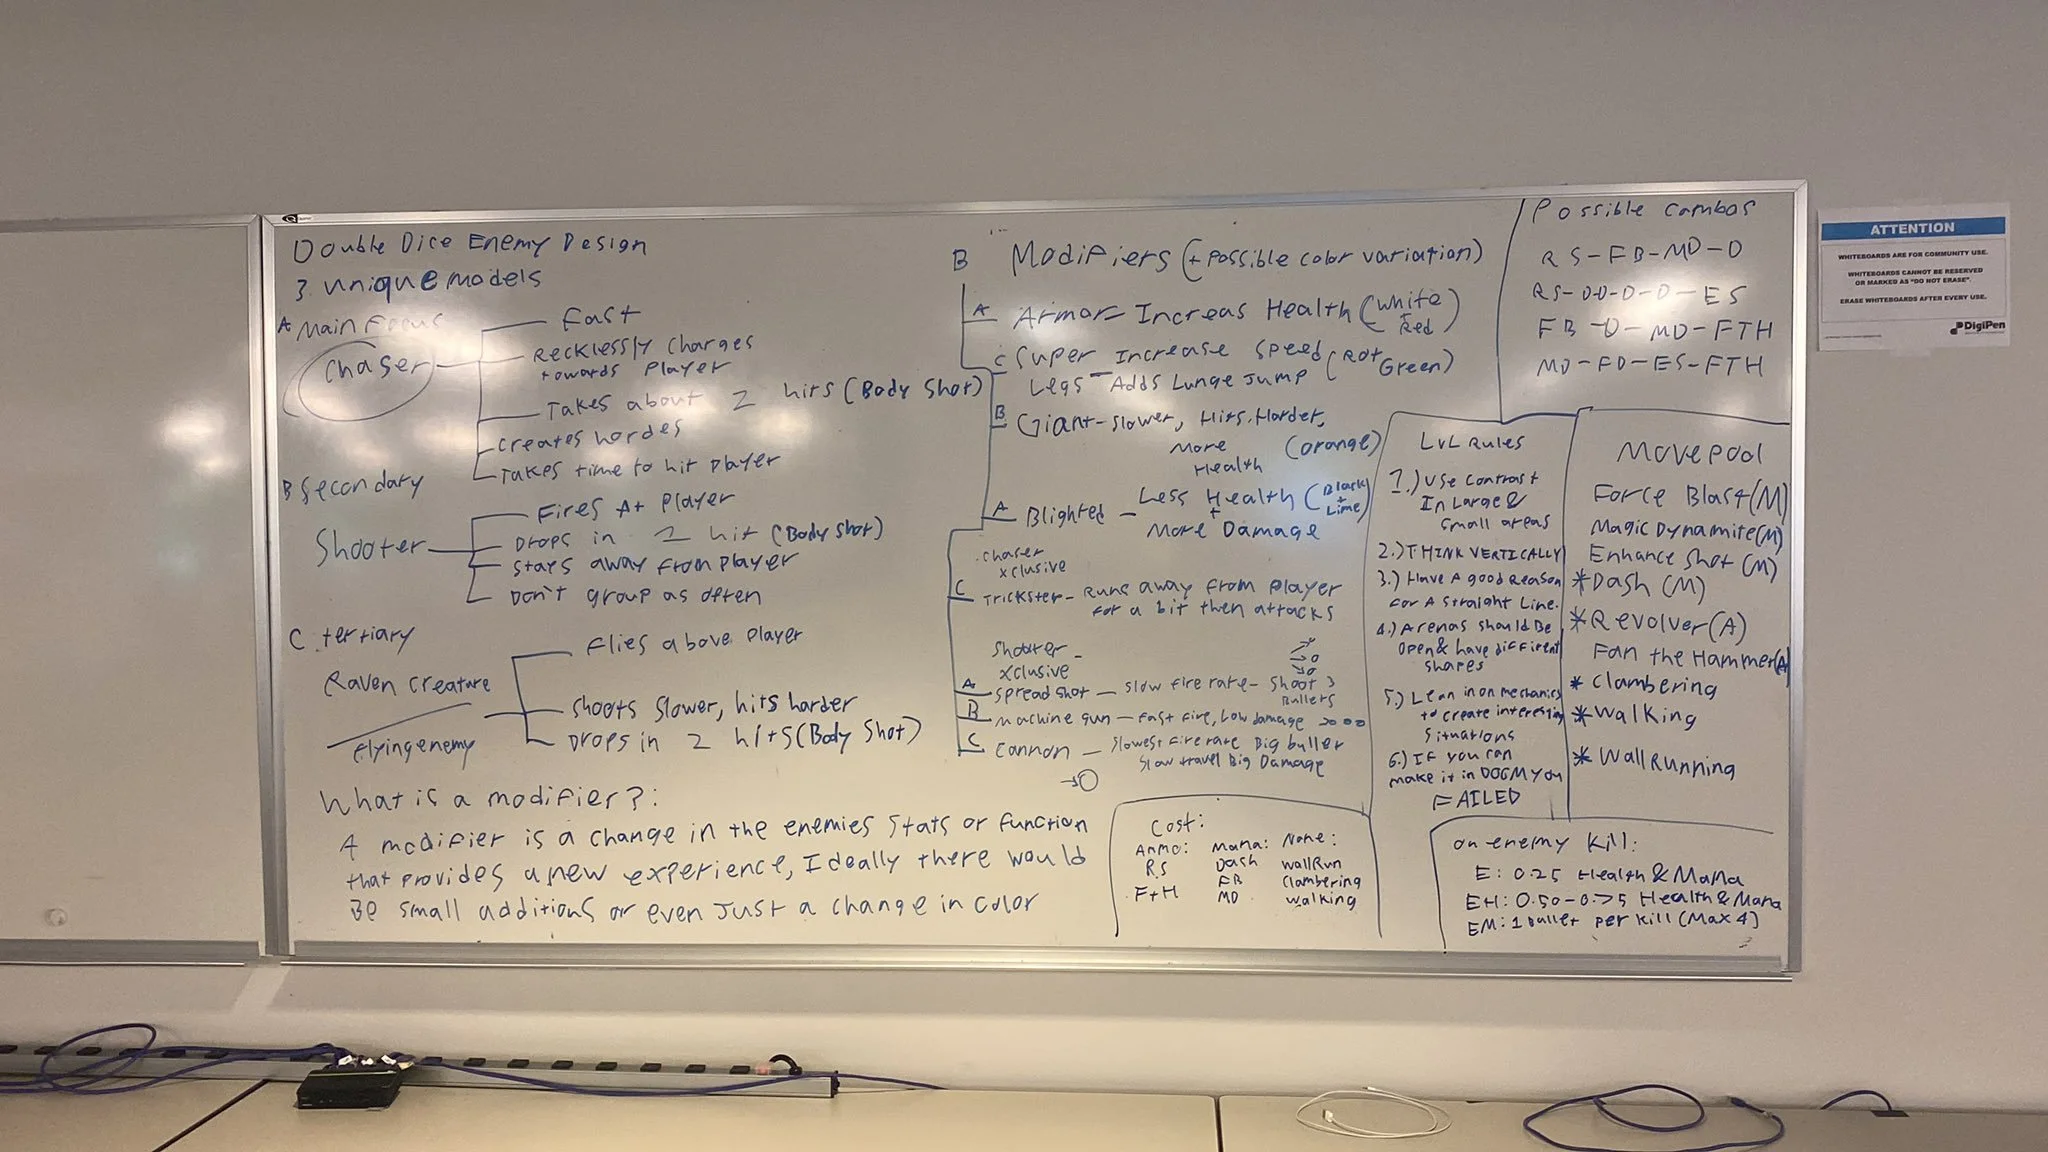 Double Dice Enemy Design
3 unique models
A Main Focus
Chaser
Fast
Recklessly Charges
towards Player
Takes about 2 hits (Body Shot)
Creates hordes
Takes time to hit player
B Secondary
Shooter
Fires At player
Drops in 2 hit (Body Shot)
Stays away from player
Don't group as often
C. tertiary
Raven Creature
Flying enemy
Flies above player
Shoots slower, hits harder
Drops in 2 hits (Body Shot)
What is a modifier?:
A modifier is a change in the enemies stats or function
that provides a new experience, Ideally there would
Be small additions or even just a change in color
B Modifiers (+ possible color variation)
A Armor= Increas Health (White + Red)
C Super Legs - Increase Speed (Rot Green)
Adds Lunge Jump
B Giant - Slower, Hits Harder,
More Health (orange)
A Blighted - Less Health (Black + Lime)
+
More Damage
Chaser
xclusive
C Trickster - Runs away from player
for a bit then attacks
Shooter
xclusive
A Spread shot - slow fire rate - Shoot 3
Bullets
B Machine gun - fast fire, Low damage
C Cannon - Slowest fire rate Big bullet
Slow travel Big Damage
Possible combos
RS-FB-MD-D
RS-D-D-D-D-ES
FB-D-MD-FTH
MD-FD-ES-FTH
LvL Rules
1.) Use Contrast
In Large &
small areas
2.) THINK VERTICALLY
3.) Have A good Reason
For A straight Line.
4.) Arenas should Be
open & have different
shares
5.) Lean in on mechanics
to create interesting
situations
6.) If you can
make it in DOOM you
FAILED
Movepool
Force Blast (M)
Magic Dynamite (M)
Enhance Shot (M)
*Dash (M)
*Revolver (A)
Fan the Hammer (A)
*Clambering
*Walking
*Wall Running
Cost:
Ammo: Mana: None:
RS Dash wallRun
FtH FB Clambering
MD walking
on enemy kill:
E: 0.25 Health & Mana
EH: 0.50-0.75 Health & Mana
EM: 1 bullet per kill (Max 4)
ATTENTION
WHITEBOARDS ARE FOR COMMUNITY USE.
WHITEBOARDS CANNOT BE RESERVED
OR MARKED AS "DO NOT ERASE".
ERASE WHITEBOARDS AFTER EVERY USE.
DigiPen